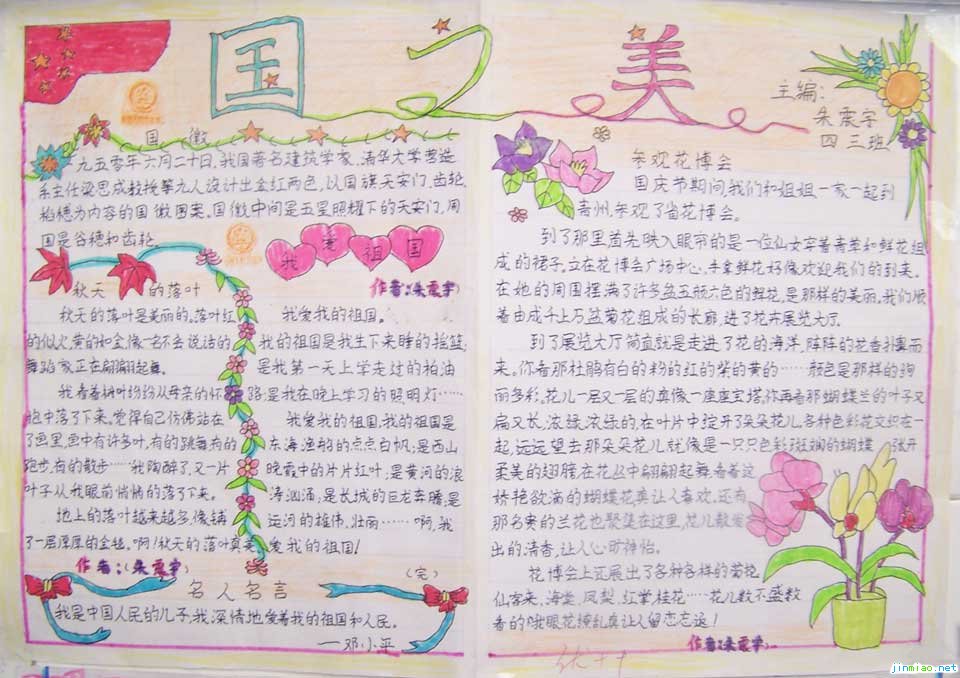 国之美
主编：
朱震宇
四三班
国徽
一九五零年六月二十日，我国著名建筑学家、清华大学营造
系主任梁思成教授等九人设计出金红两色，以国旗天安门、齿轮、
稻穗为内容的国徽图案。国徽中间是五星照耀下的天安门，周
围是谷穗和齿轮。
秋天的落叶
秋天的落叶是美丽的。落叶红
的似火，黄的如金，像一名不会说话的
舞蹈家正在翩翩起舞。
我看着树叶纷纷从母亲的怀
抱中落了下来。觉得自己仿佛站在
了画里，画中有许多叶，有的跳舞，有的
跑步，有的散步……我陶醉了，又一片
叶子从我眼前悄悄的落了下来。
地上的落叶越来越多，像铺
了一层厚厚的金毯。啊！秋天的落叶真美
作者：（朱震宇）
我爱祖国
作者：（朱震宇）
我爱我的祖国。
我的祖国是我生下来睡的摇篮；
是我第一天上学走过的柏油
路；是我在晚上学习的照明灯……
我爱我的祖国，我的祖国是
东海渔船的点点白帆；是西山
晚霞中的片片红叶；是黄河的浪
涛汹涌；是长城的巨龙奔腾；是
运河的雄伟，壮丽……啊，我
爱我的祖国！
（完）
名人名言
我是中国人民的儿子，我深情地爱着我的祖国和人民。
——邓小平
参观花博会
国庆节期间，我们和姐姐一家一起到
青州，参观了省花博会。
到了那里首先映入眼帘的是一位仙女穿着青菜和鲜花组
成的裙子。立在花博会广场中心，手拿鲜花好像欢迎我们的到来。
在她的周围摆满了许多盆五颜六色的鲜花，是那样的美丽。我们顺
着由成千上万盆菊花组成的长廊，进了花卉展览大厅。
到了展览大厅简直就是走进了花的海洋，阵阵的花香扑鼻而
来。你看那杜鹃有白的粉的红的紫的黄的……颜色是那样的绚
丽多彩。花儿一层又一层的真像一座座宝塔。你再看那蝴蝶兰的叶子又
扁又长，浓绿，浓绿的，在叶片中绽开了朵朵花儿，各种色彩花交织在一
起，远远望去那朵朵花儿就像是一只只色彩斑斓的蝴蝶张开
柔美的翅膀在花丛中翩翩起舞。看着这
娇艳欲滴的蝴蝶花真让人喜欢，还有
那名贵的兰花也聚集在这里，花儿散发
出的清香，让人心旷神怡。
花博会上还展出了各种各样的菊花，
仙客来，海棠，凤梨，红掌，桂花……花儿数不盛数
看的我眼花缭乱真让人留恋忘返！
作者：（朱震宇）
优++
jinmiao.net